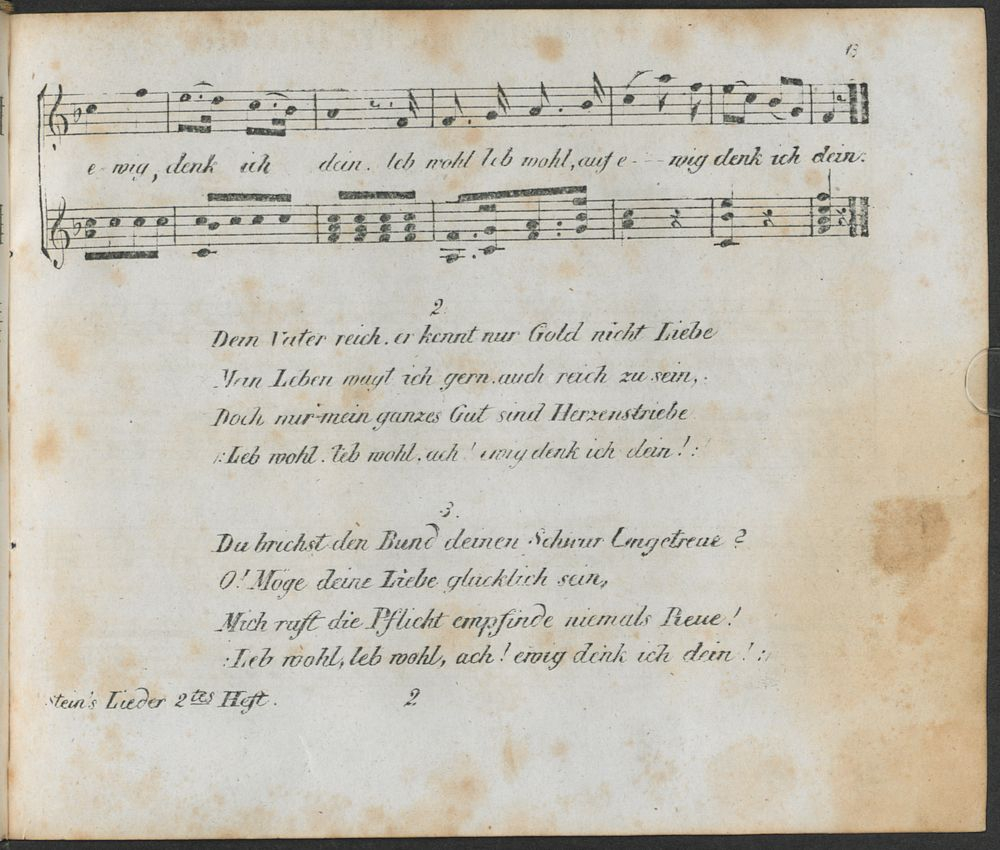 13
e-wig, denk ich dein. leb wohl leb wohl, auf e---wig denk ich dein.
2.
Dein Vater reich. er kennt nur Gold nicht Liebe
Mein Leben wagt ich gern. auch reich zu sein,.
Doch nur mein ganzes Gut sind Herzenstriebe
:Leb wohl. leb wohl. ach! ewig denk ich dein!:
3.
Du brichst den Bund deinen Schwur Ungetreue?
O! Möge deine Liebe glücklich sein,
Mich ruft die Pflicht empfinde niemals Reue!
:Leb wohl, leb wohl, ach! ewig denk ich dein!:
stein's Lieder 2tes Heft. 2